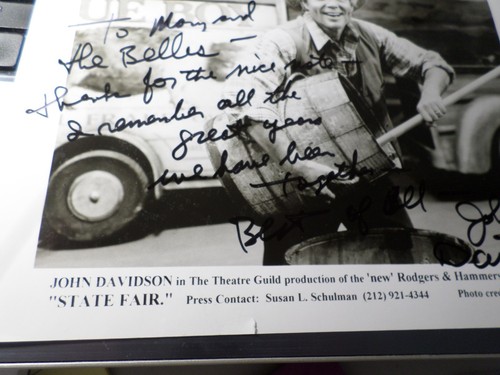 To Mary and
the Belles —
thanks for the nice note —
I remember all the
great years
we have been
together
Best of all —
JOHN DAVIDSON in The Theatre Guild production of the 'new' Rodgers & Hammers
"STATE FAIR." Press Contact: Susan L. Schulman (212) 921-4344 Photo cre